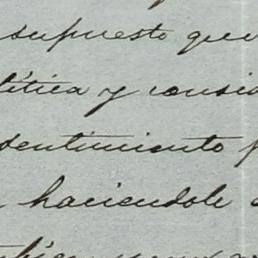 supuesto que
lítica y consid
sentimiento p
haciendole